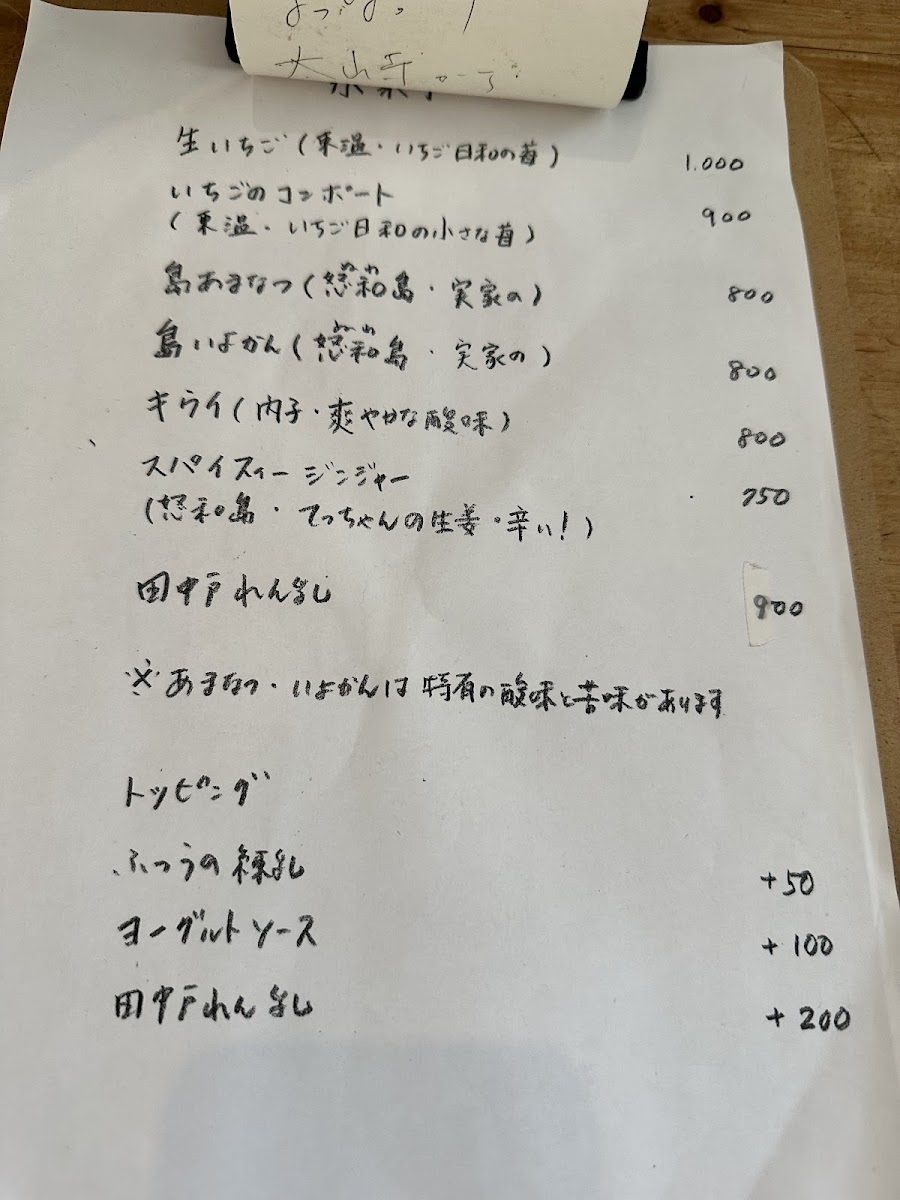 大山
生いちご(東温・いちご日和の苺) 1.000
いちごのコンポート
(東温・いちご日和の小さな苺) 900
ぬわ
島あまなつ(怒和島・実家の) 800
ぬわ
島いよかん(怒和島・実家の) 800
キウイ(内子・爽やかな酸味) 800
スパイスィージンジャー
(怒和島・てっちゃんの生姜・辛い!) 750
田中戸れんにゅう 900
※あまなつ・いよかんは特有の酸味と苦味があります
トッピング
ふつうの練乳 +50
ヨーグルトソース +100
田中戸れん乳 +200